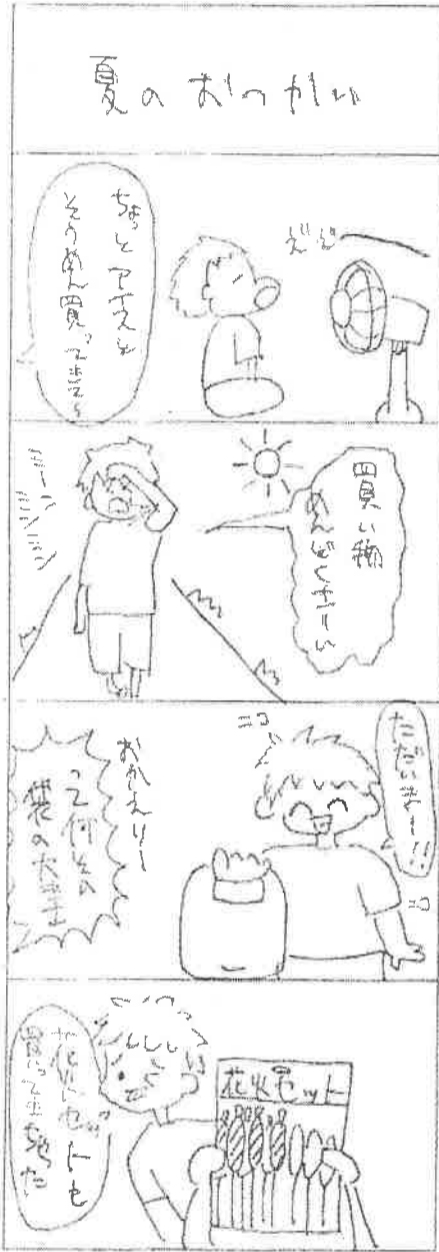 夏のおつかい
ぶぶ
ちょっとアイスと
そうめん買ってきて〜
買い物
めんどくさーい
ミーン
ミンミン
ただいまー!!
ニコ
ニコ
おかえりー
って何その
袋の大きさ
花火セット
花火セットも
買ってきちゃった